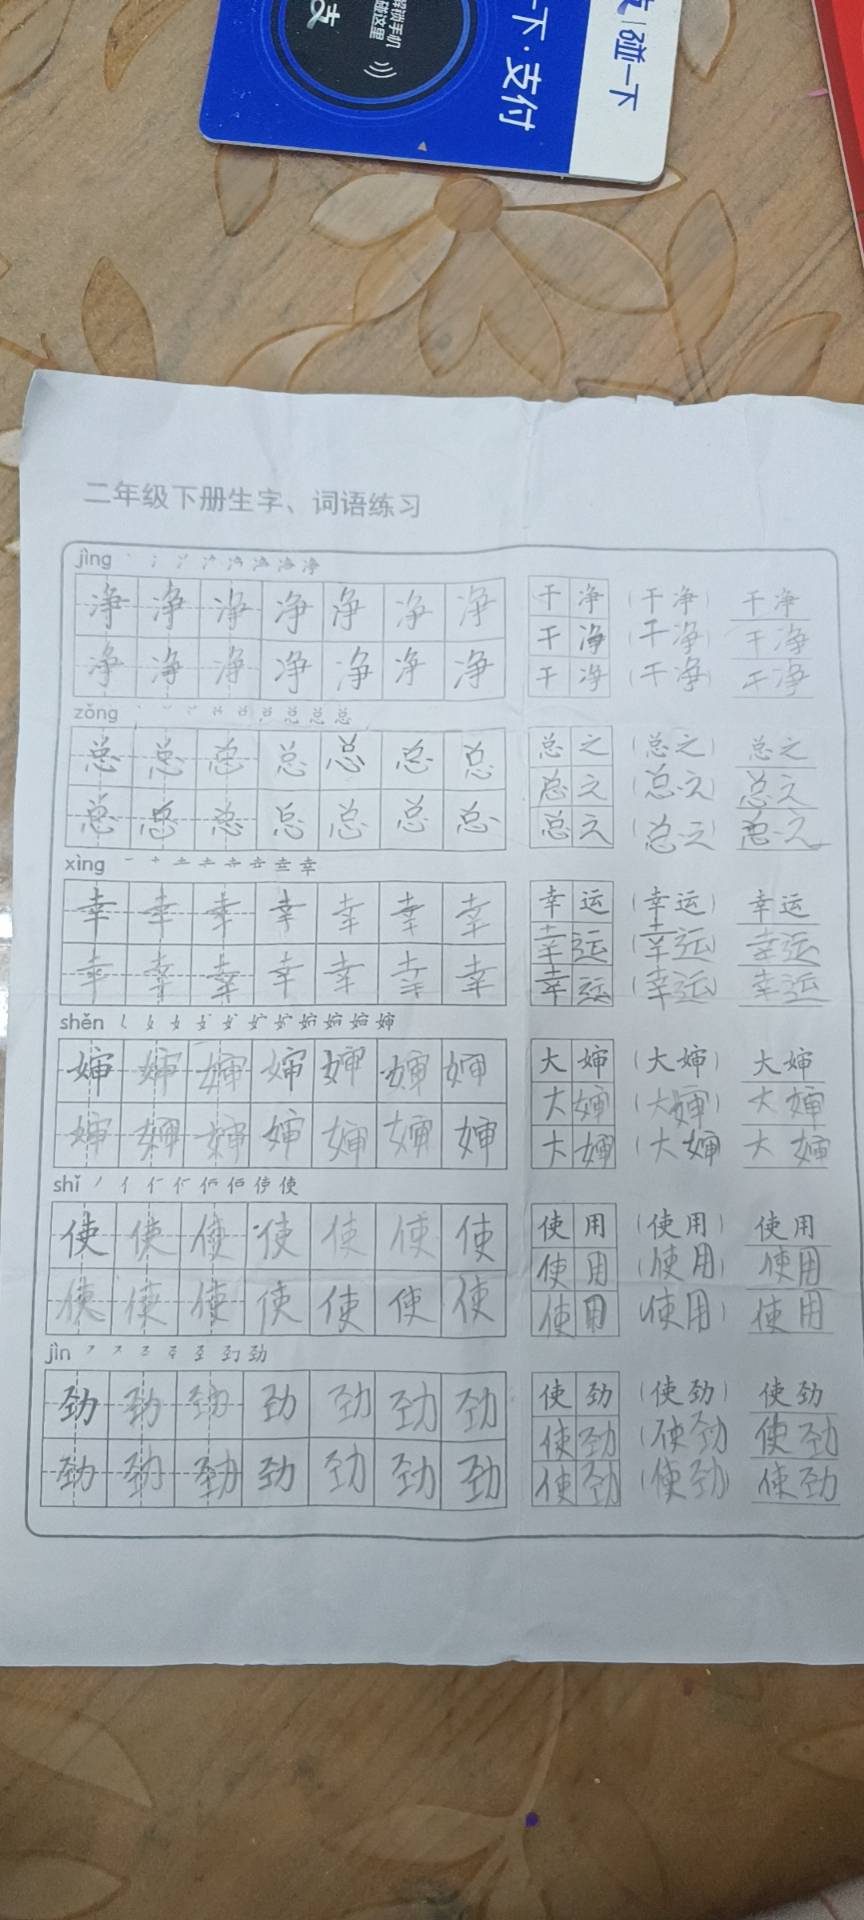 支 碰一下
一下·支付
解锁手机
碰这里
支
二年级下册生字、词语练习
jìng
净 净 净 净 净 净 净 干 净 (干净) 干净
干 净 (干净) 干净
净 净 净 净 净 净 净 干 净 (干净) 干净
zǒng
总 总 总 总 总 总 总 总 之 (总之) 总之
总 之 (总之) 总之
总 总 总 总 总 总 总 总 之 (总之) 总之
xìng
幸 幸 幸 幸 幸 幸 幸 幸 运 (幸运) 幸运
幸 运 (幸运) 幸运
幸 幸 幸 幸 幸 幸 幸 幸 运 (幸运) 幸运
shěn
婶 婶 婶 婶 婶 婶 婶 大 婶 (大婶) 大婶
大 婶 (大婶) 大婶
婶 婶 婶 婶 婶 婶 婶 大 婶 (大婶 大婶
shǐ
使 使 使 使 使 使 使 使 用 (使用) 使用
使 用 (使用) 使用
使 使 使 使 使 使 使 使 用 (使用) 使用
jìn
劲 劲 劲 劲 劲 劲 劲 使 劲 (使劲) 使劲
使 劲 (使劲 使劲
劲 劲 劲 劲 劲 劲 劲 使 劲 (使劲) 使劲